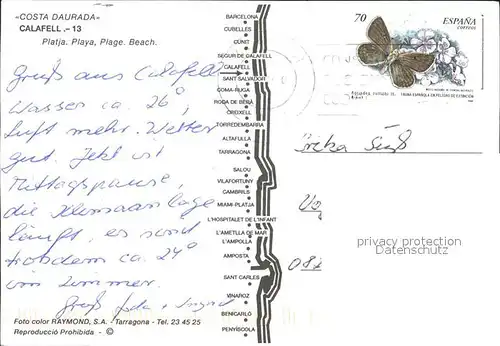 «COSTA DAURADA»
CALAFELL .- 13
Platja. Playa, Plage. Beach.
Gruß aus Calafell
Wasser ca. 26°,
Luft mehr. Wetter
gut. Jetzt ist
Mittagspause,
die Klimaanlage
läuft, es sind
trotzdem ca. 24°
im Zimmer.
Gruß Ingrid
Foto color RAYMOND, S.A. - Tarragona - Tel. 23 45 25
Reproducció Prohibida - ©
BARCELONA
CUBELLES
CUNIT
SEGUR DE CALAFELL
CALAFELL
SANT SALVADOR
COMA-RUGA
RODA DE BERÀ
CREIXELL
TORREDEMBARRA
ALTAFULLA
TARRAGONA
SALOU
VILAFORTUNY
CAMBRILS
MIAMI-PLATJA
L'HOSPITALET DE L'INFANT
L'AMETLLA DE MAR
L'AMPOLLA
AMPOSTA
SANT CARLES
VINAROZ
BENICARLÓ
PENYÍSCOLA
70
ESPAÑA
CORREOS
FAUNA ESPAÑOLA EN PELIGRO DE EXTINCIÓN
privacy protection
DatenSchutz